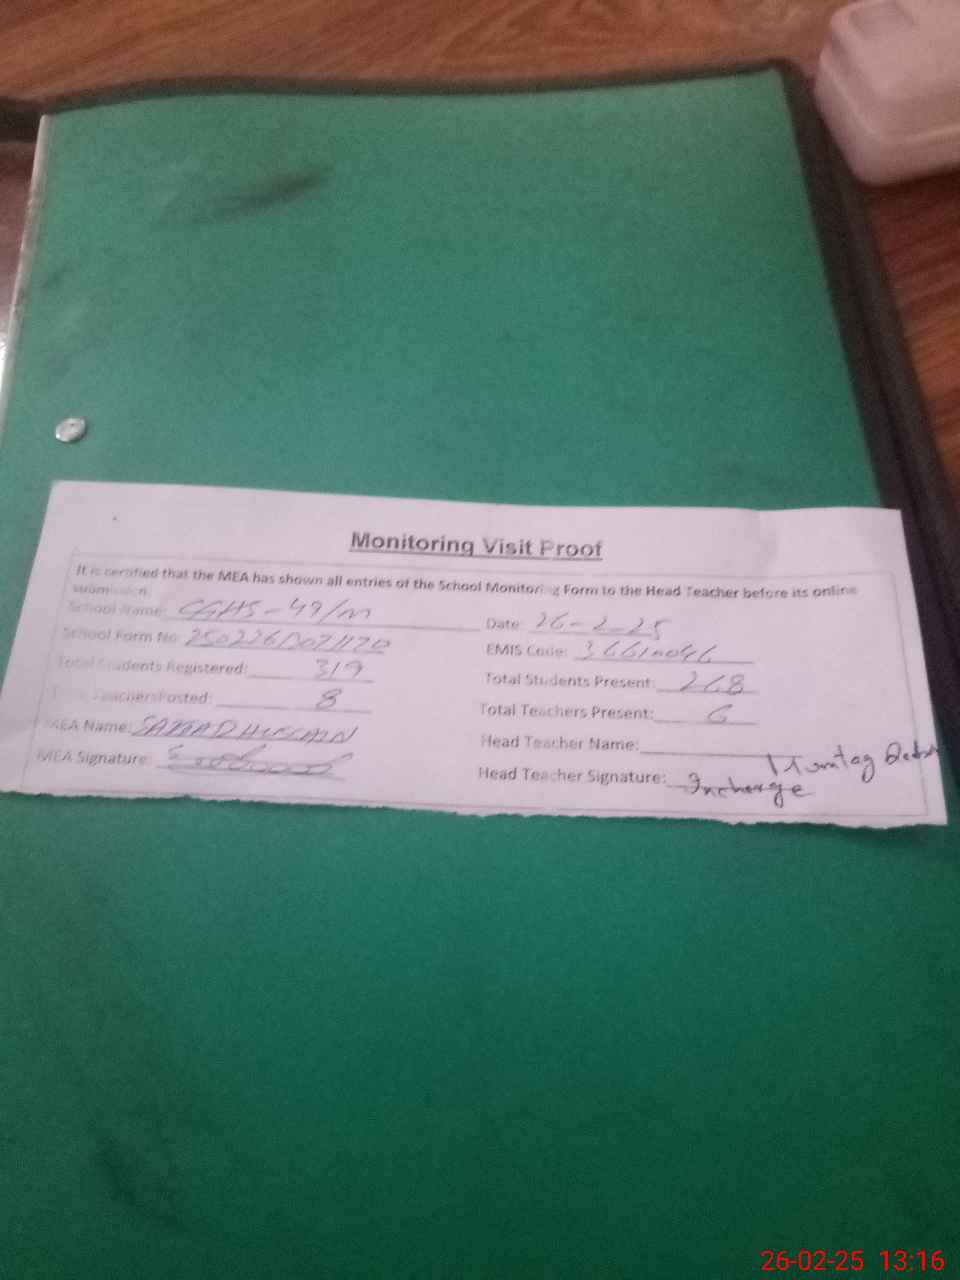 Monitoring Visit Proof
It is certified that the MEA has shown all entries of the School Monitoring Form to the Head Teacher before its online
submission.
School Name: GGHS-49/M
Date: 26-2-25
School Form No:
EMIS Code:
Total Students Registered: 319
Total Students Present: 268
Total Teachers Posted: 8
Total Teachers Present: 6
MEA Name: HUSSAIN
Head Teacher Name:
MEA Signature:
Head Teacher Signature: Incharge
26-02-25 13:16